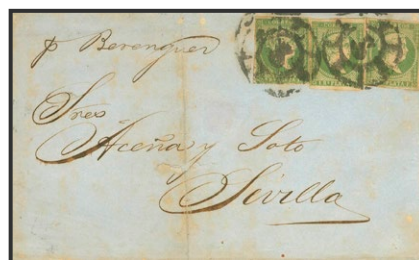 p Berenguer
Sres
Aceña y Soto
Sevilla